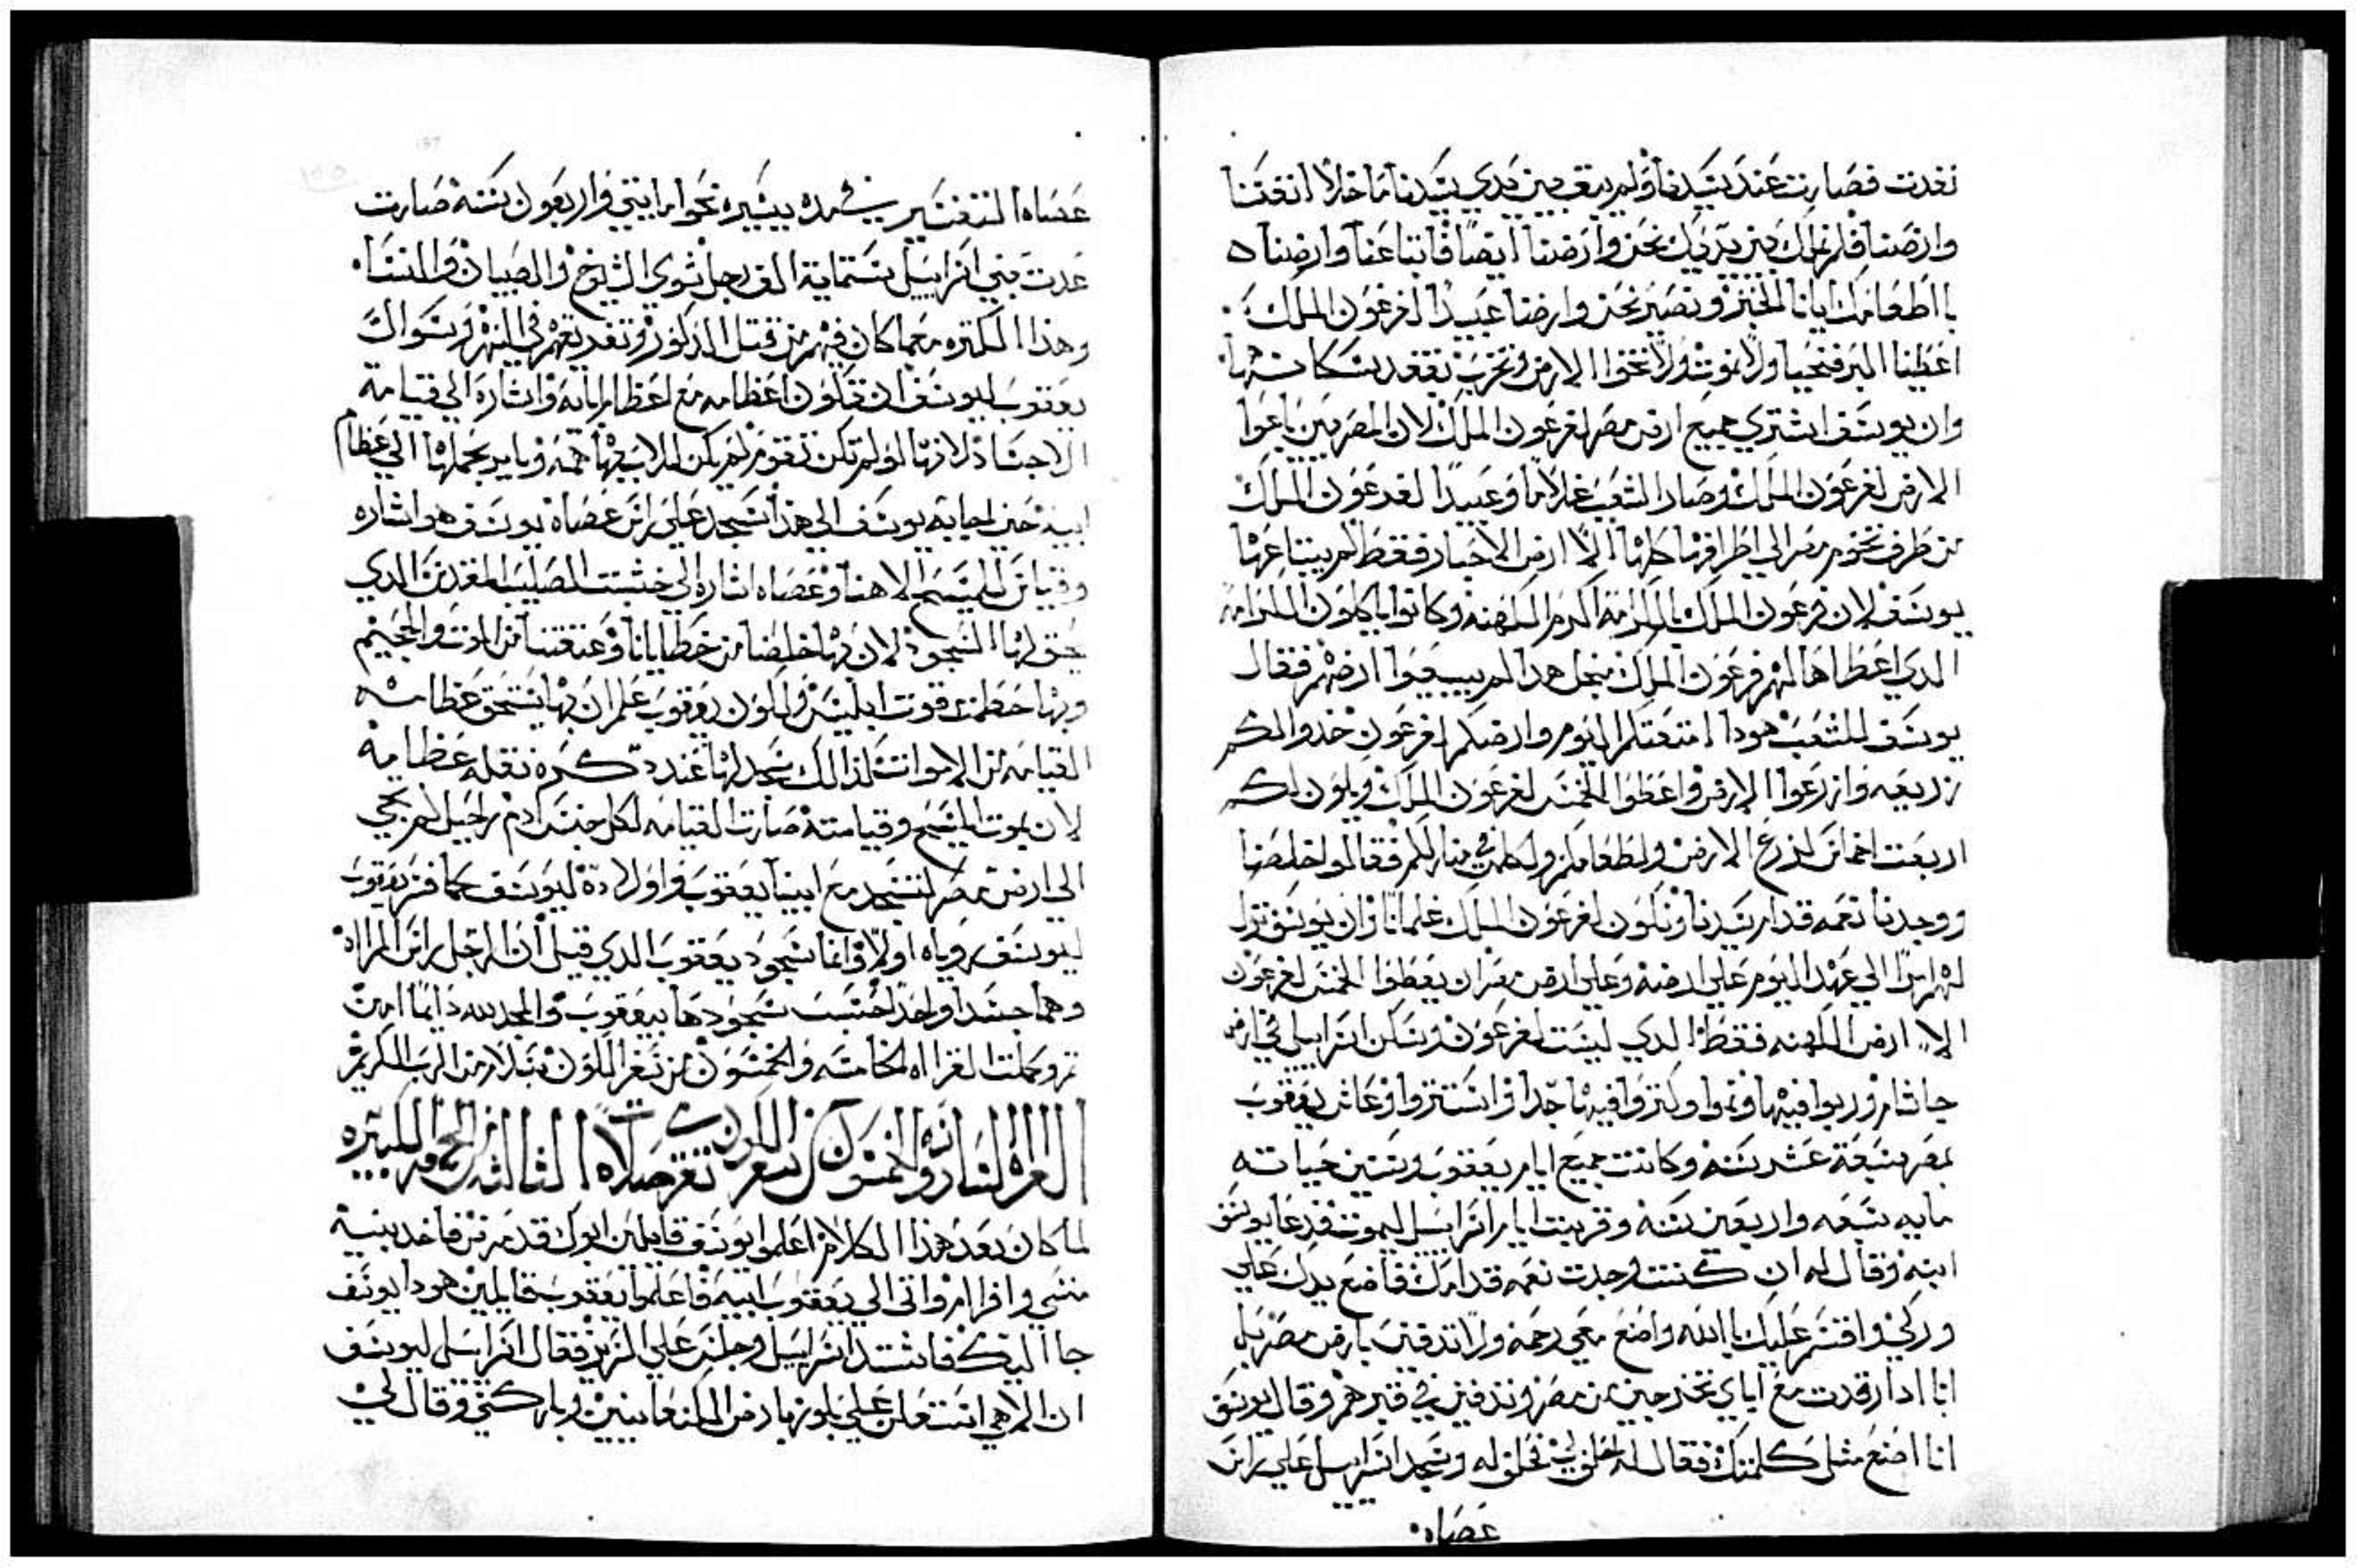 نفدت فصارت عند سيدنا ولم يتبق بين يدي سيدنا ما خلا انفسنا
وارضنا فلا نهلك بين يديك نحن وارضنا ايضا فابتاعنا وارضنا
بااطعامك ايانا الخبز ونصير نحن وارضنا عبيدا لفرعون الملك
اعطينا البر فنحيا ولا نموت ولا تخوا الارض وتخرب بفقد سكانها
وان يوسف اشتري جميع ارض مصر لفرعون الملك لان المصريين باعوا
الارض لفرعون الملك وصار الشعب غلاما وعبيدا لفرعون الملك
من طرف تخوم مصر الي اطرافها كلها الا ارض الاحبار فقط لم يبتاعها
يوسف لان فرعون الملك بالكرامة اكرم الكهنه وكانوا ياكلون الكرامه
الدي اعطاها لهم فرعون الملك منجل هدا لم يبيعوا ارضهم فقال
يوسف للشعب هودا ابتعتكم اليوم وارضكم لفرعون خدوا لكم
زريعه وازرعوا الارض واعطوا الخمس لفرعون الملك ويكون لكم
اربعت اخماس لزرع الارض ولطعامكم ولكلمن في منازلكم فقالوا خلصنا
ووجدنا نعمه قدام سيدنا ونكون لفرعون الملك غلمانا وان يوسف ترك
لهم امرا الي هدا اليوم علي ارضه وعلي ارض مصر ان يعطوا الخمس لفرعون
الا ارض الكهنه فقط الدي ليست لفرعون وسكن اسراييل في ارض
جاشام وربوا فيها ونموا وكتروا فيها جدا واستتروا وعاش يعقوب
بمصر سبعة عشر سنه وكانت جميع ايام يعقوب وسنين حياته
مايه سبعه واربعين سنه وقربت ايام اسراييل ليموت فدعا يوسف
ابنه وقال له ان كنت وجدت نعمه قدامك فاضع يدك علي
وركي واقسم عليك باالله واصنع معي رحمه ولا تدفني بارض مصر بل
انا ادا رقدت مع اباي تخرجني من مصر وتدفني في قبرهم وقال يوسف
انا اصنع مثل كلمتك فقال له احلف لي فحلف له وسجد اسراييل علي راس
عصاه
عصاه التفسير في مده يسيره نحوا مايتي واربعون سنه صارت
عدت بني اسراييل ستمايه الف رجل سوي الشيوخ والصبيان والنساء
وهذا الكتره معما كان فيهم من قتل الدكور وتغريقهم في النهر وسوال
يعقوب ليوسف ان تكون اعظامه مع اعظام ابايه واشاره الي قيامة
الاجساد لانها لو لم تكن تقوم لم يكن للاب فيها همه ويامر بحملها الي عظام
ابيه حين اجابه يوسف الي هذا سجد علي راس عصاة يوسف هو اشاره
وقياس للمسيح الاهنا وعصاه اشاره الي خشبت الصليب المقدس الدي
يحق لها السجود لان بها خلصنا من خطايانا وعتقتنا من الموت والجحيم
وبها حطمت قوت ابليس ولكون يعقوب علم ان بها يستحق عظامه
القيامه من الاموات لذالك سجد لها عند دكره نقله عظامه
لان بموت المسيح وقيامته صارت القيامه لكل جنس ادم راحيل لم تجي
الي ارض مصر لتسجد مع ابينا يعقوب واولاده ليوسف كما فسر يعقوب
ليوسف روياه اولا وانما سجود يعقوب الدي قيل ان الرجل راس المراه
وهما جسدا واحدا احتسب سجودها بيعقوب والمجد لله دايما امين
تم وكملت القراه الخامسه والخمسون من سفر التكوين بسلام من الرب الكريم
القراه السادسه والخمسون من سفر التكوين تقرا صلاه الثالثه الجمعه الكبيره
لما كان بعد هذا الكلام اعلموا يوسف قايلين ابوك قد مرض فاخد بنيه
منسي وافرام واتى الي يعقوب ابيه فاعلموا يعقوب قايلين هودا يوسف
جا اليك فاشتد اسراييل وجلس علي السرير فقال اسراييل ليوسف
ان الاهي استعلن علي بلوزا بارض الكنعانيين وباركني وقال لي